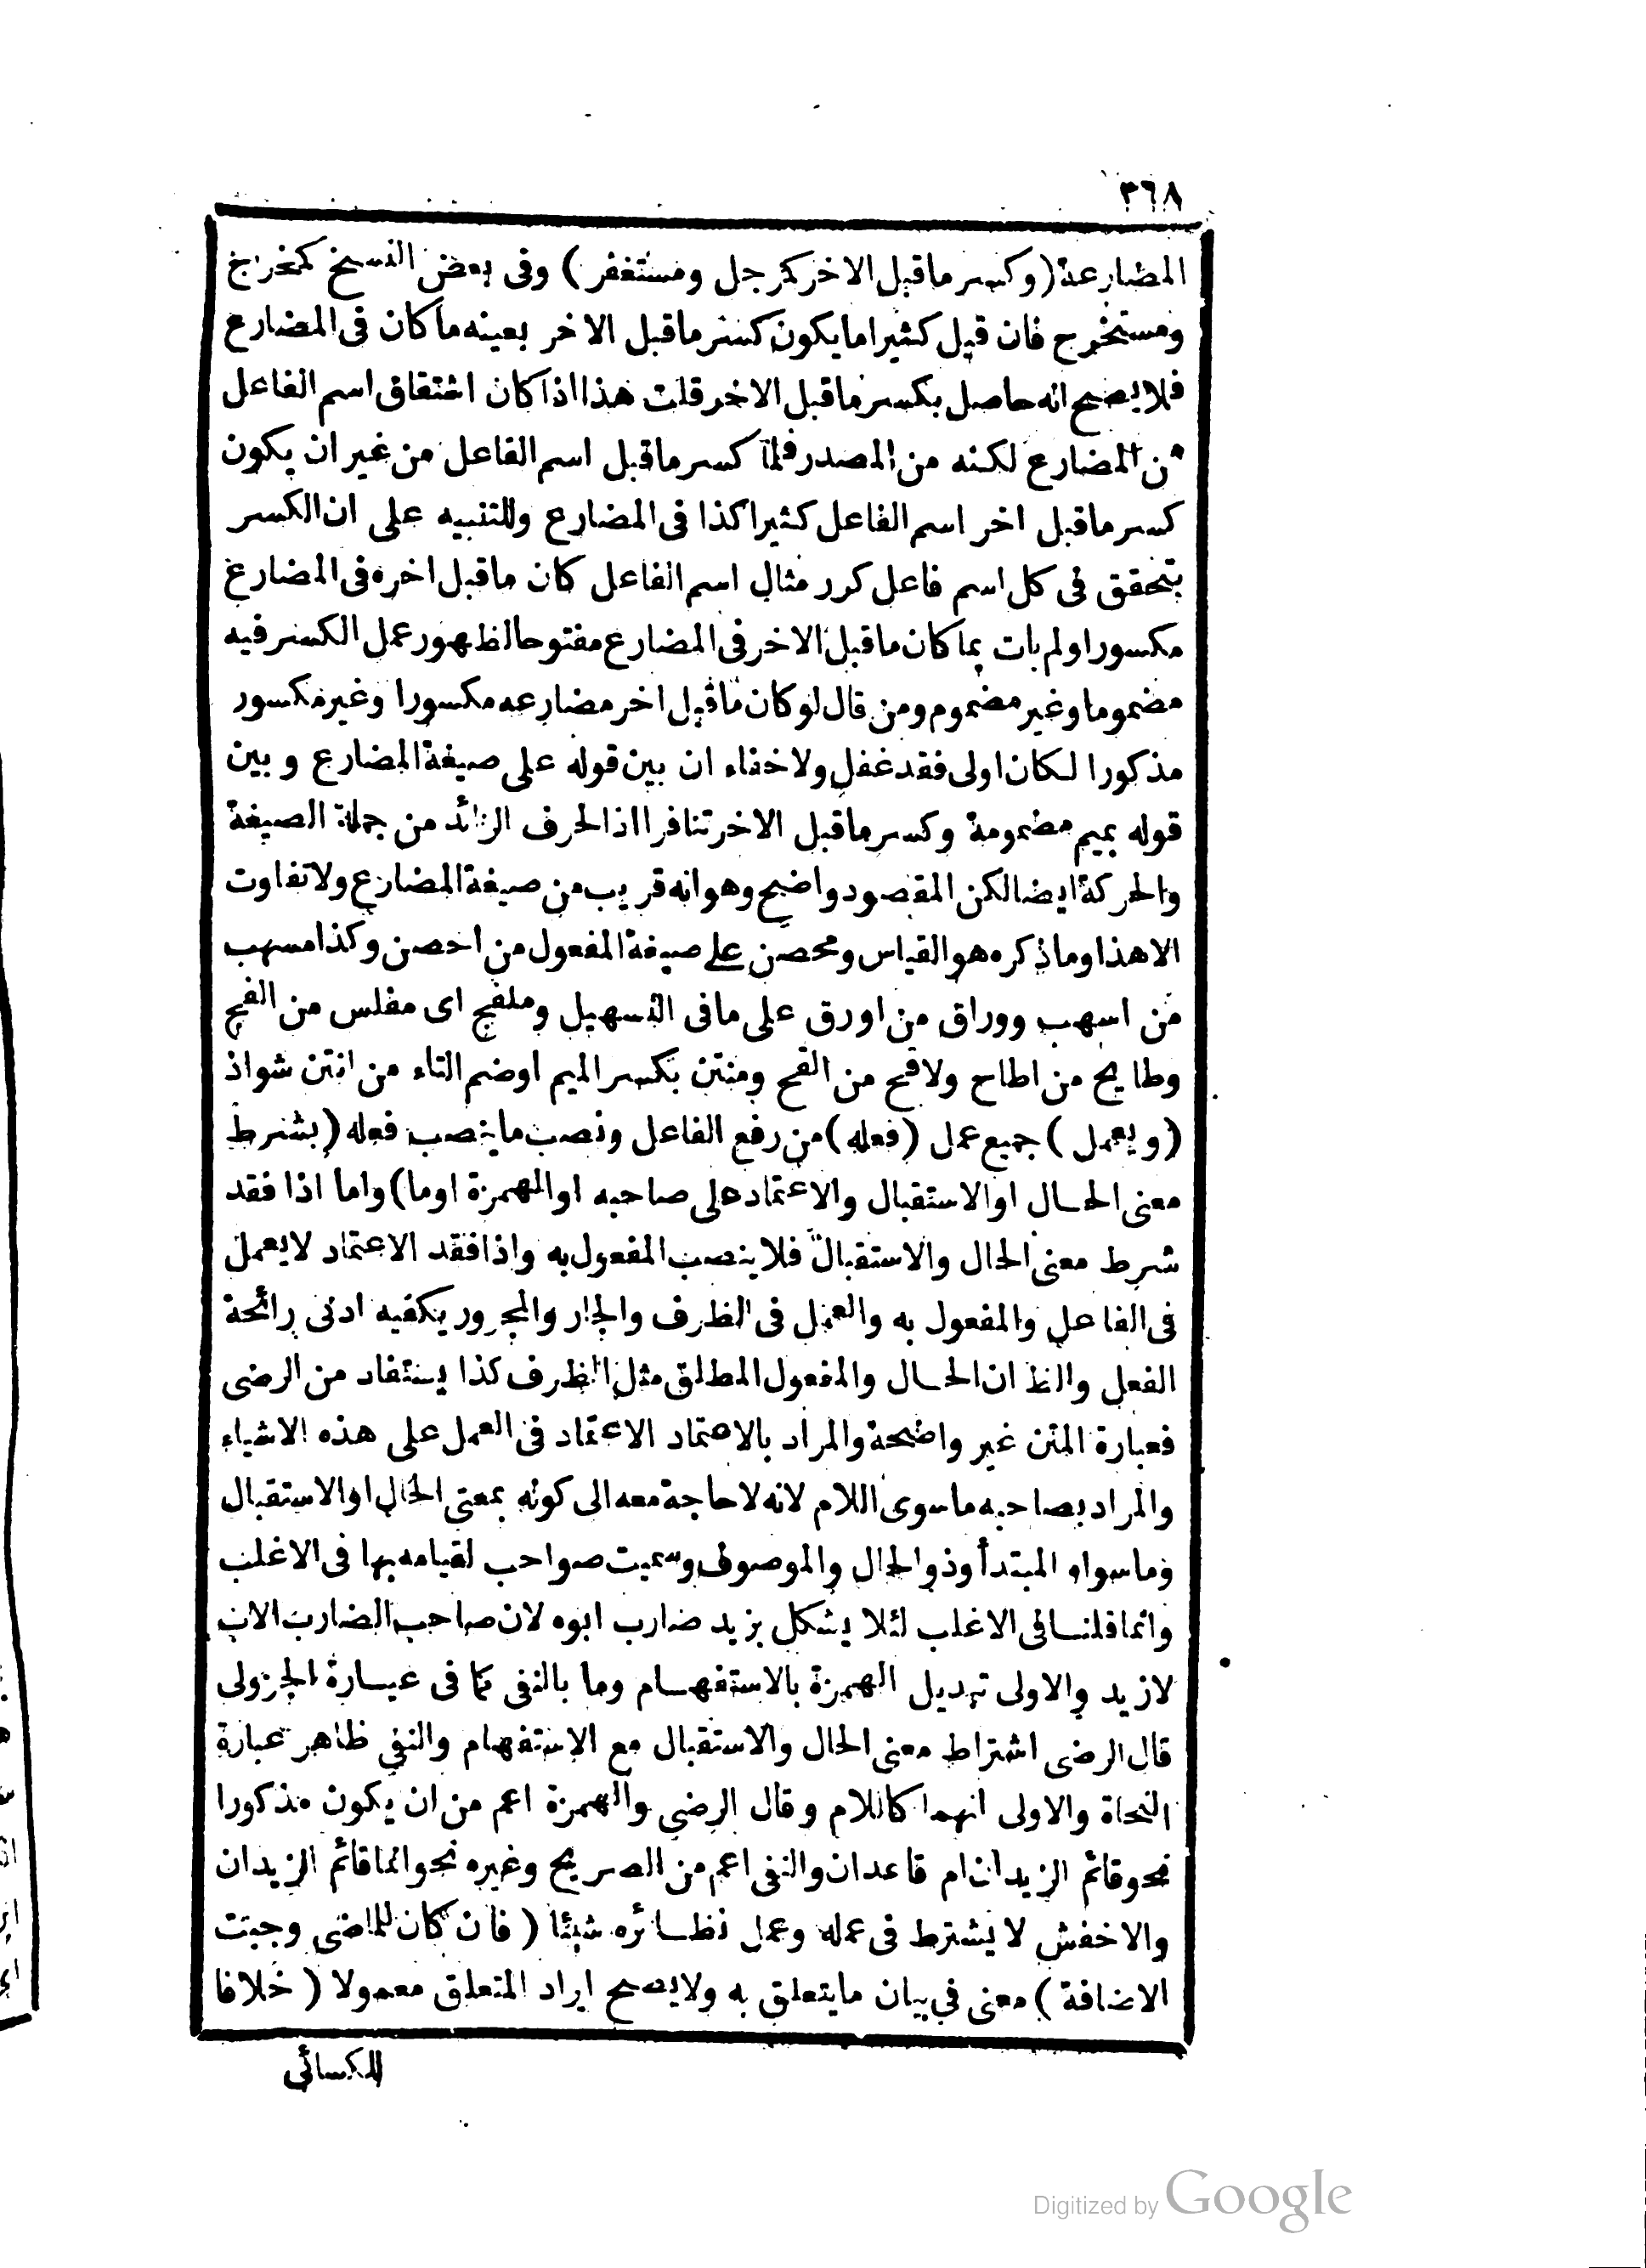 ٣٦٨
المضارعة (وكسر ماقبل الاخر كمدخل ومستغفر) وفى بعض النسخ كمخرج
ومستخرج فان قيل كثيرا ما يكون كسر ماقبل الاخر بعينه ما كان فى المضارع
فلا يصح انه حاصل بكسر ماقبل الاخر قلت هذا اذا كان اشتقاق اسم الفاعل
من المضارع لكنه من المصدر فلما كسر ماقبل اسم الفاعل من غير ان يكون
كسر ماقبل اخر اسم الفاعل كثيرا كذا فى المضارع وللتنبيه على ان الكسر
يتحقق فى كل اسم فاعل كرر مثال اسم الفاعل كان ماقبل اخره فى المضارع
مكسورا ولم يات بما كان ماقبل الاخر فى المضارع مفتوحا لظهور عمل الكسر فيه
مضموما وغير مضموم ومن قال لو كان ماقبل اخر مضارعه مكسورا وغير مكسور
مذكورا لكان اولى فقد غفل ولا خفاء ان بين قوله على صيغة المضارع وبين
قوله بميم مضمومة وكسر ماقبل الاخر تنافرا اذ الحرف الزائد من جملة الصيغة
والحركة ايضا لكن المقصود واضح وهو انه قريب من صيغة المضارع ولا تفاوت
الا هذا وما ذكره هو القياس ومحصن على صيغة المفعول من احصن وكذا مسهب
من اسهب ووراق من اورق على ما فى التسهيل وملفج اى مفلس من الفج
وطايح من اطاح ولاقح من القح ومنتن بكسر الميم اوضم التاء من انتن شواذ
(ويعمل) جميع عمل (فعله) من رفع الفاعل ونصب ما ينصب فعله (بشرط
معنى الحال او الاستقبال والاعتماد على صاحبه او الهمزة او ما) واما اذا فقد
شرط معنى الحال والاستقبال فلا ينصب المفعول به واذا فقد الاعتماد لا يعمل
فى الفاعل والمفعول به والعمل فى الظرف والجار والمجرور يكفيه ادنى رائحة
الفعل والظ ان الحال والمفعول المطلق مثل الظرف كذا يستفاد من الرضى
فعبارة المتن غير واضحة والمراد بالاعتماد الاعتماد فى العمل على هذه الاشياء
والمراد بصاحبه ماسوى اللام لانه لا حاجة معه الى كونه بمعنى الحال او الاستقبال
وما سواه المبتدأ وذو الحال والموصوف وسميت صواحب لقيامه بها فى الاغلب
وانما قلنا فى الاغلب لئلا يشكل بزيد ضارب ابوه لان صاحب الضارب الاب
لا زيد والاولى تبديل الهمزة بالاستفهام وما بالنفى كما فى عبارة الجزولى
قال الرضى اشتراط معنى الحال والاستقبال مع الاستفهام والنفى ظاهر عبارة
النحاة والاولى انهما كاللام وقال الرضى والهمزة اعم من ان يكون مذكورا
نحو قائم الزيدان ام قاعدان والنفى اعم من الصريح وغيره نحو انما قائم الزيدان
والاخفش لا يشترط فى عمله وعمل نظائره شيئا (فان كان للماضى وجبت
الاضافة) معنى فى بيان ما يتعلق به ولا يصح ايراد المتعلق معمولا (خلافا
للكسائى
Digitized by Google